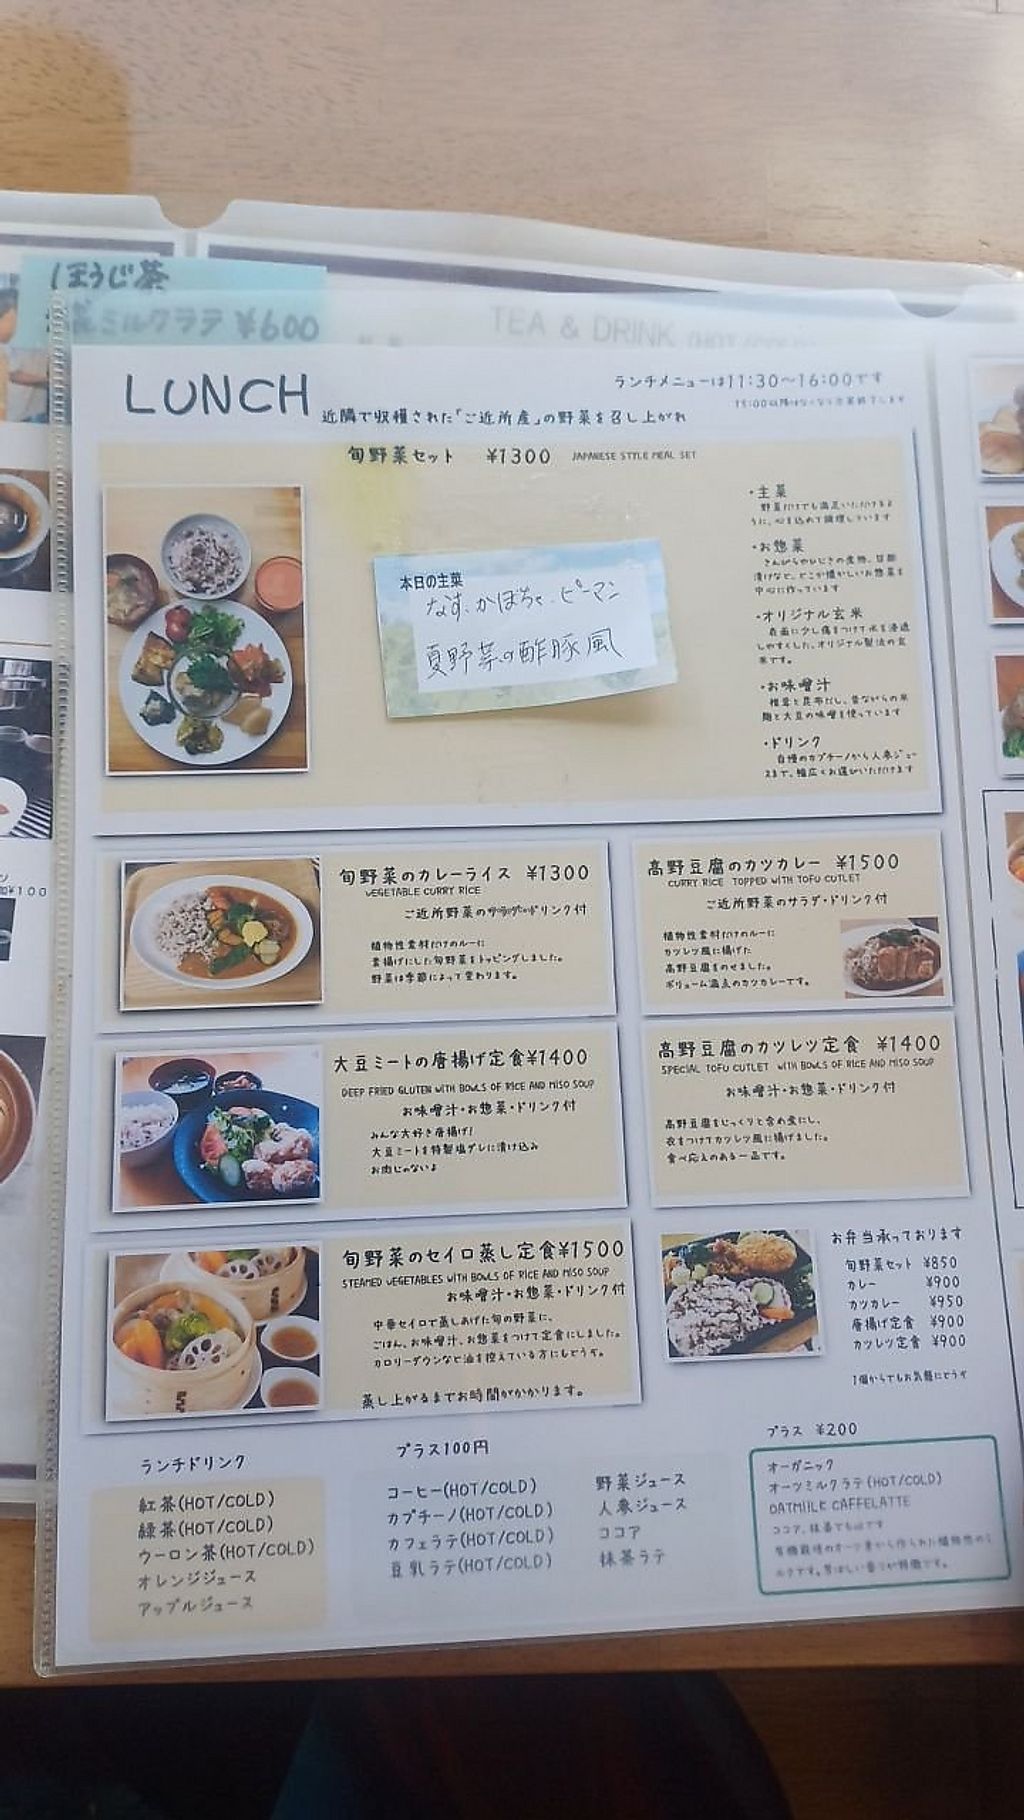 ほうじ茶
ミルクラテ ¥600
TEA & DRINK
LUNCH
ランチメニューは11:30〜16:00です
近隣で収穫された「ご近所産」の野菜を召し上がれ
旬野菜セット ¥1300 JAPANESE STYLE MEAL SET
本日の主菜
なす、かぼちゃ、ピーマン
夏野菜の酢豚風
・主菜
野菜だけでも満足いただけるよ
うに、心を込めて調理しています
・お惣菜
きんぴらやひじきの煮物、甘酢
漬けなど、どこか懐かしいお惣菜を
中心に作っています
・オリジナル玄米
表面に少し傷をつけて水を浸透
しやすくした、オリジナル製法の玄
米です。
・お味噌汁
椎茸と昆布だし、昔ながらの米
麹と大豆の味噌を使っています
・ドリンク
自慢のカプチーノから人参ジュー
スまで、幅広くお選びいただけます
旬野菜のカレーライス ¥1300
VEGETABLE CURRY RICE
ご近所野菜のサラダ・ドリンク付
植物性素材だけのルーに
素揚げにした旬野菜をトッピングしました。
野菜は季節によって変わります。
高野豆腐のカツカレー ¥1500
CURRY RICE TOPPED WITH TOFU CUTLET
ご近所野菜のサラダ・ドリンク付
植物性素材だけのルーに
カツレツ風に揚げた
高野豆腐をのせました。
ボリューム満点のカツカレーです。
大豆ミートの唐揚げ定食¥1400
DEEP FRIED GLUTEN WITH BOWLS OF RICE AND MISO SOUP
お味噌汁・お惣菜・ドリンク付
みんな大好き唐揚げ!
大豆ミートを特製塩ダレに漬け込み
お肉じゃないよ
高野豆腐のカツレツ定食 ¥1400
SPECIAL TOFU CUTLET WITH BOWLS OF RICE AND MISO SOUP
お味噌汁・お惣菜・ドリンク付
高野豆腐をじっくりと含め煮にし、
衣をつけてカツレツ風に揚げました。
食べ応えのある一品です。
旬野菜のセイロ蒸し定食¥1500
STEAMED VEGETABLES WITH BOWLS OF RICE AND MISO SOUP
お味噌汁・お惣菜・ドリンク付
中華セイロで蒸しあげた旬の野菜に、
ごはん、お味噌汁、お惣菜をつけて定食にしました。
カロリーダウンなど油を控えている方にもどうぞ。
蒸し上がるまでお時間がかかります。
お弁当承っております
旬野菜セット ¥850
カレー ¥900
カツカレー ¥950
唐揚げ定食 ¥900
カツレツ定食 ¥900
1個からでもお気軽にどうぞ
ランチドリンク
紅茶(HOT/COLD)
緑茶(HOT/COLD)
ウーロン茶(HOT/COLD)
オレンジジュース
アップルジュース
プラス100円
コーヒー(HOT/COLD)
カプチーノ(HOT/COLD)
カフェラテ(HOT/COLD)
豆乳ラテ(HOT/COLD)
野菜ジュース
人参ジュース
ココア
抹茶ラテ
プラス ¥200
オーガニック
オーツミルクラテ(HOT/COLD)
OATMIILK CAFFELATTE
ココア、抹茶でも◎です
有機栽培のオーツ麦から作られた植物性のミ
ルクです。香ばしい香りが特徴です。
¥100